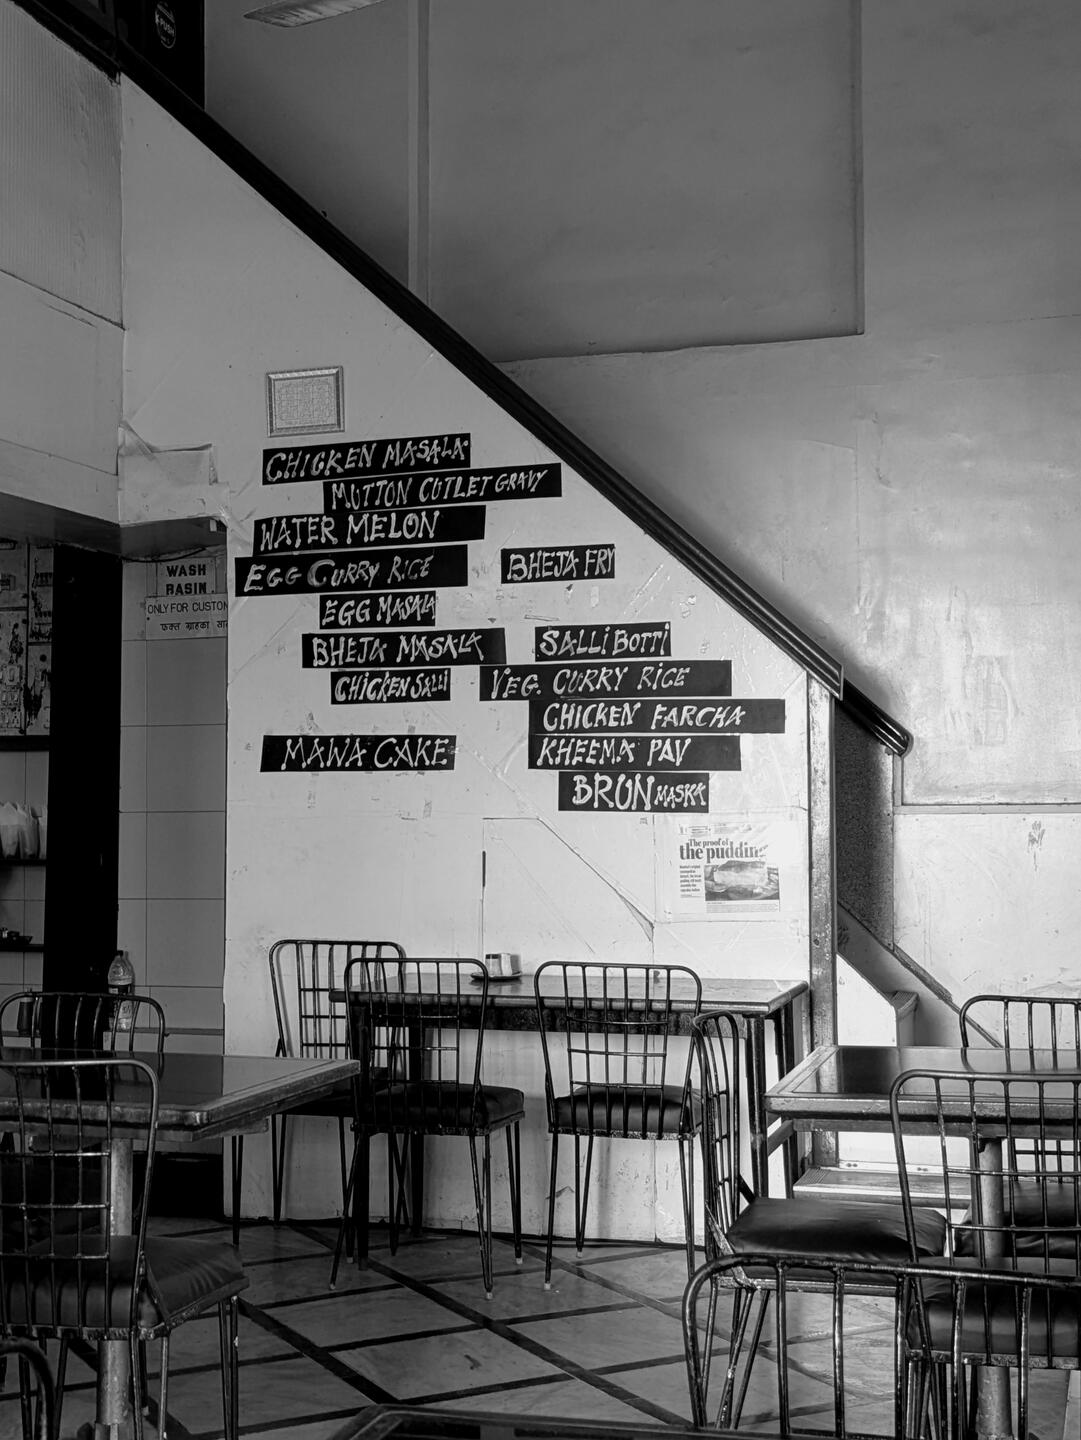 PUSH
CHICKEN MASALA
MUTTON CUTLET GRAVY
WATER MELON
EGG CURRY RICE
BHEJA FRY
EGG MASALA
BHEJA MASALA
SALLI BOTTI
CHICKEN SALLI
VEG. CURRY RICE
CHICKEN FARCHA
MAWA CAKE
KHEEMA PAV
BRUN MASKA
WASH
BASIN
ONLY FOR CUSTOM
फक्त ग्राहका
The proof of
the puddin